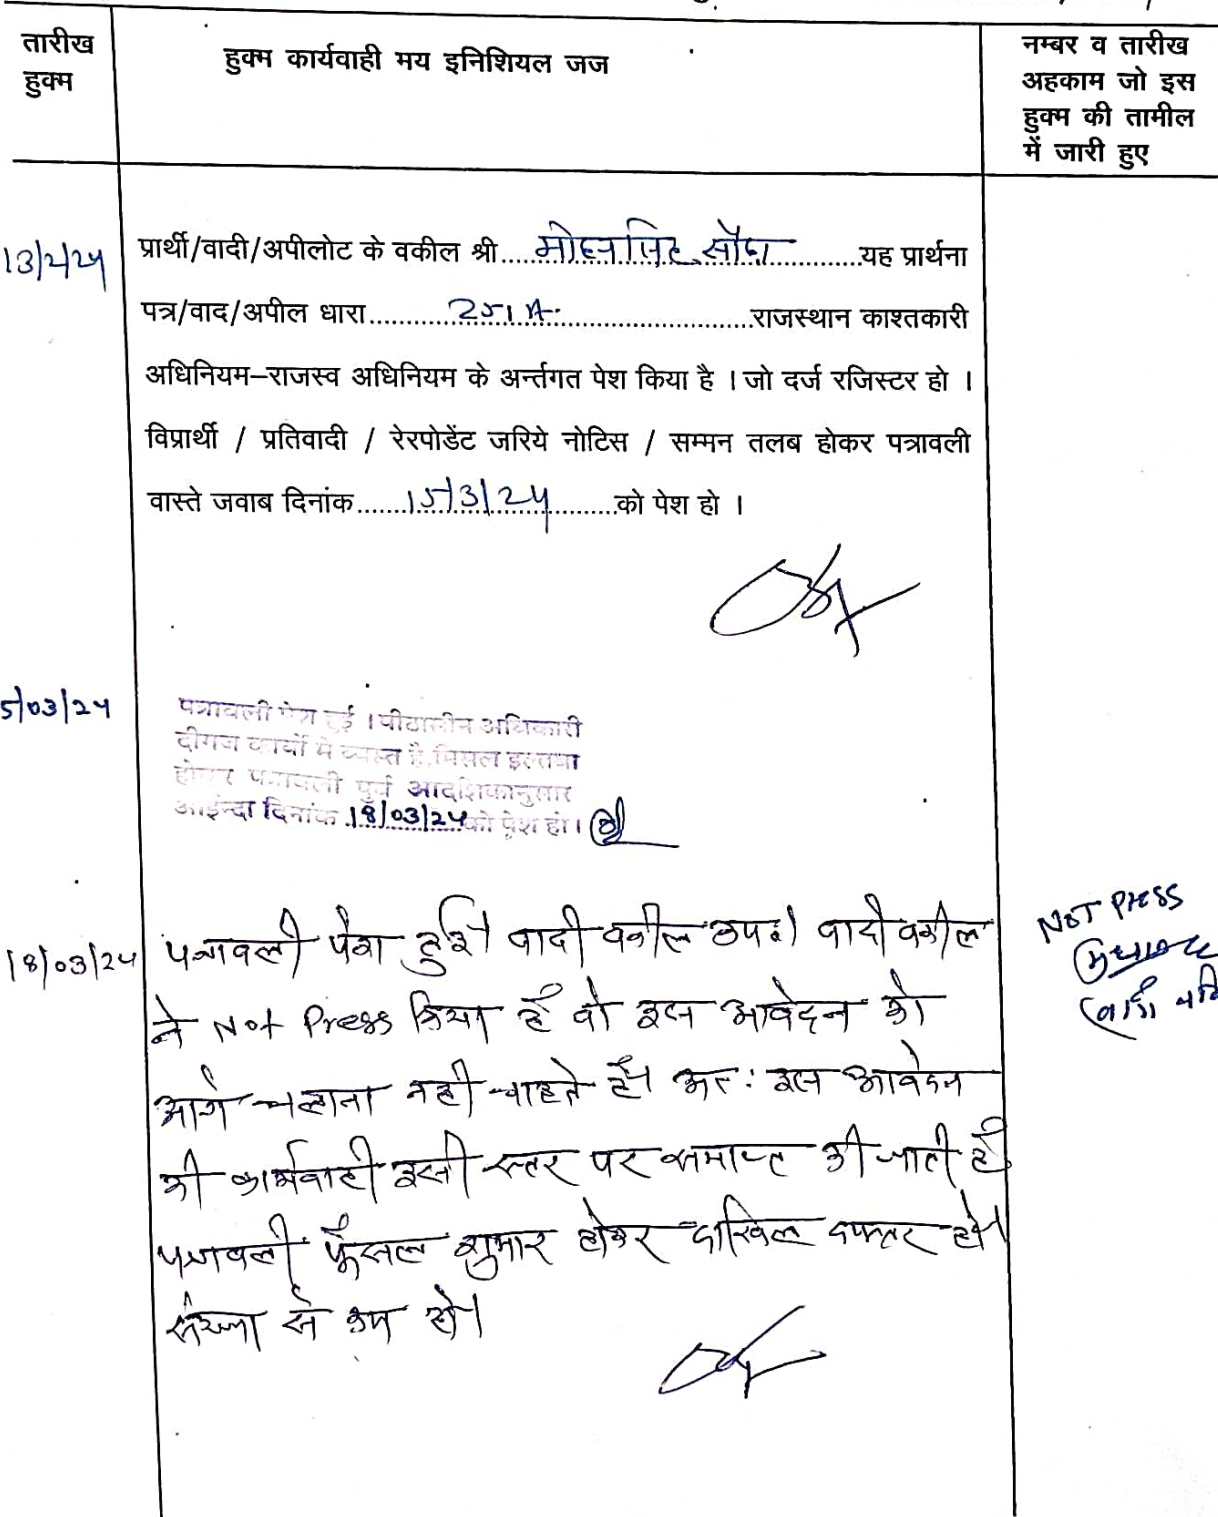 तारीख
हुक्म
हुक्म कार्यवाही मय इनिशियल जज
नम्बर व तारीख
अहकाम जो इस
हुक्म की तामील
में जारी हुए
13/2/24
प्रार्थी/वादी/अपीलोट के वकील श्री.....मोहन सिंह सौदा.....यह प्रार्थना
पत्र/वाद/अपील धारा.....251 A.....राजस्थान काश्तकारी
अधिनियम–राजस्व अधिनियम के अर्न्तगत पेश किया है । जो दर्ज रजिस्टर हो ।
विप्रार्थी / प्रतिवादी / रेरपोडेंट जरिये नोटिस / सम्मन तलब होकर पत्रावली
वास्ते जवाब दिनांक.....15/3/24.....को पेश हो ।
5/03/24
पत्रावली पेश हुई । पीठासीन अधिकारी
दीगज कार्यो में व्यस्त है, मिसल इल्तवा
होकर पत्रावली पुर्व आदेशिकानुसार
आईन्दा दिनांक 18/03/24 को पेश हो ।
18/03/24
पत्रावली पेश हुई। वादी वकील उप०। वादी वकील
ने Not Press किया है वो इस आवेदन को
आगे चलाना नही चाहते है। अत: इस आवेदन
की कार्यवाही इसी स्तर पर समाप्त की जाती है
पत्रावली फैसल शुमार होकर दाखिल दफ्तर हो।
संख्या से कम हो।
NOT PRESS